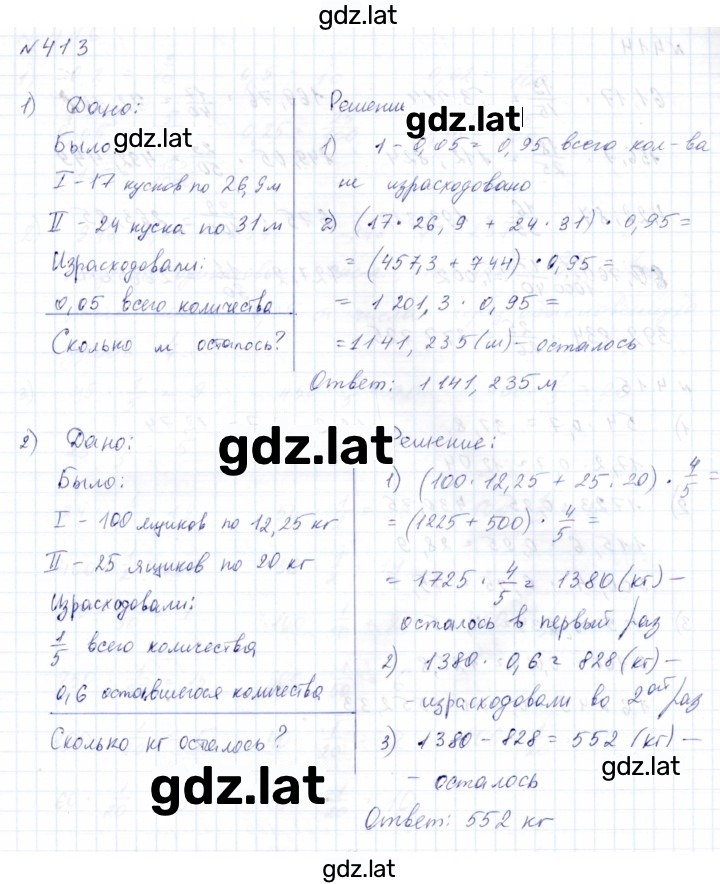 gdz.lat
№413
1) Дано:
Было
I - 17 кусков по 26,9м
II - 24 куска по 31м
Израсходовали:
0,05 всего количества
Сколько м осталось?
Решени
gdz.lat
gdz.lat
1) 1 - 0,05 = 0,95 всего кол-ва
не израсходовано
2) (17 · 26,9 + 24 · 31) · 0,95 =
= (457,3 + 744) · 0,95 =
= 1201,3 · 0,95 =
= 1141,235 (м) - осталось
Ответ: 1141,235 м
2) Дано:
gdz.lat
Было:
I - 100 ящиков по 12,25 кг
II - 25 ящиков по 20 кг
Израсходовали:
1/5 всего количества
0,6 оставшегося количества
Сколько кг осталось?
Решение:
1) (100 · 12,25 + 25 · 20) · 4/5 =
= (1225 + 500) · 4/5 =
= 1725 · 4/5 = 1380 (кг) -
осталось в первый раз
2) 1380 · 0,6 = 828 (кг) -
- израсходовали во 2ой раз
3) 1380 - 828 = 552 (кг) -
- осталось
gdz.lat
gdz.lat
Ответ: 552 кг
gdz.lat